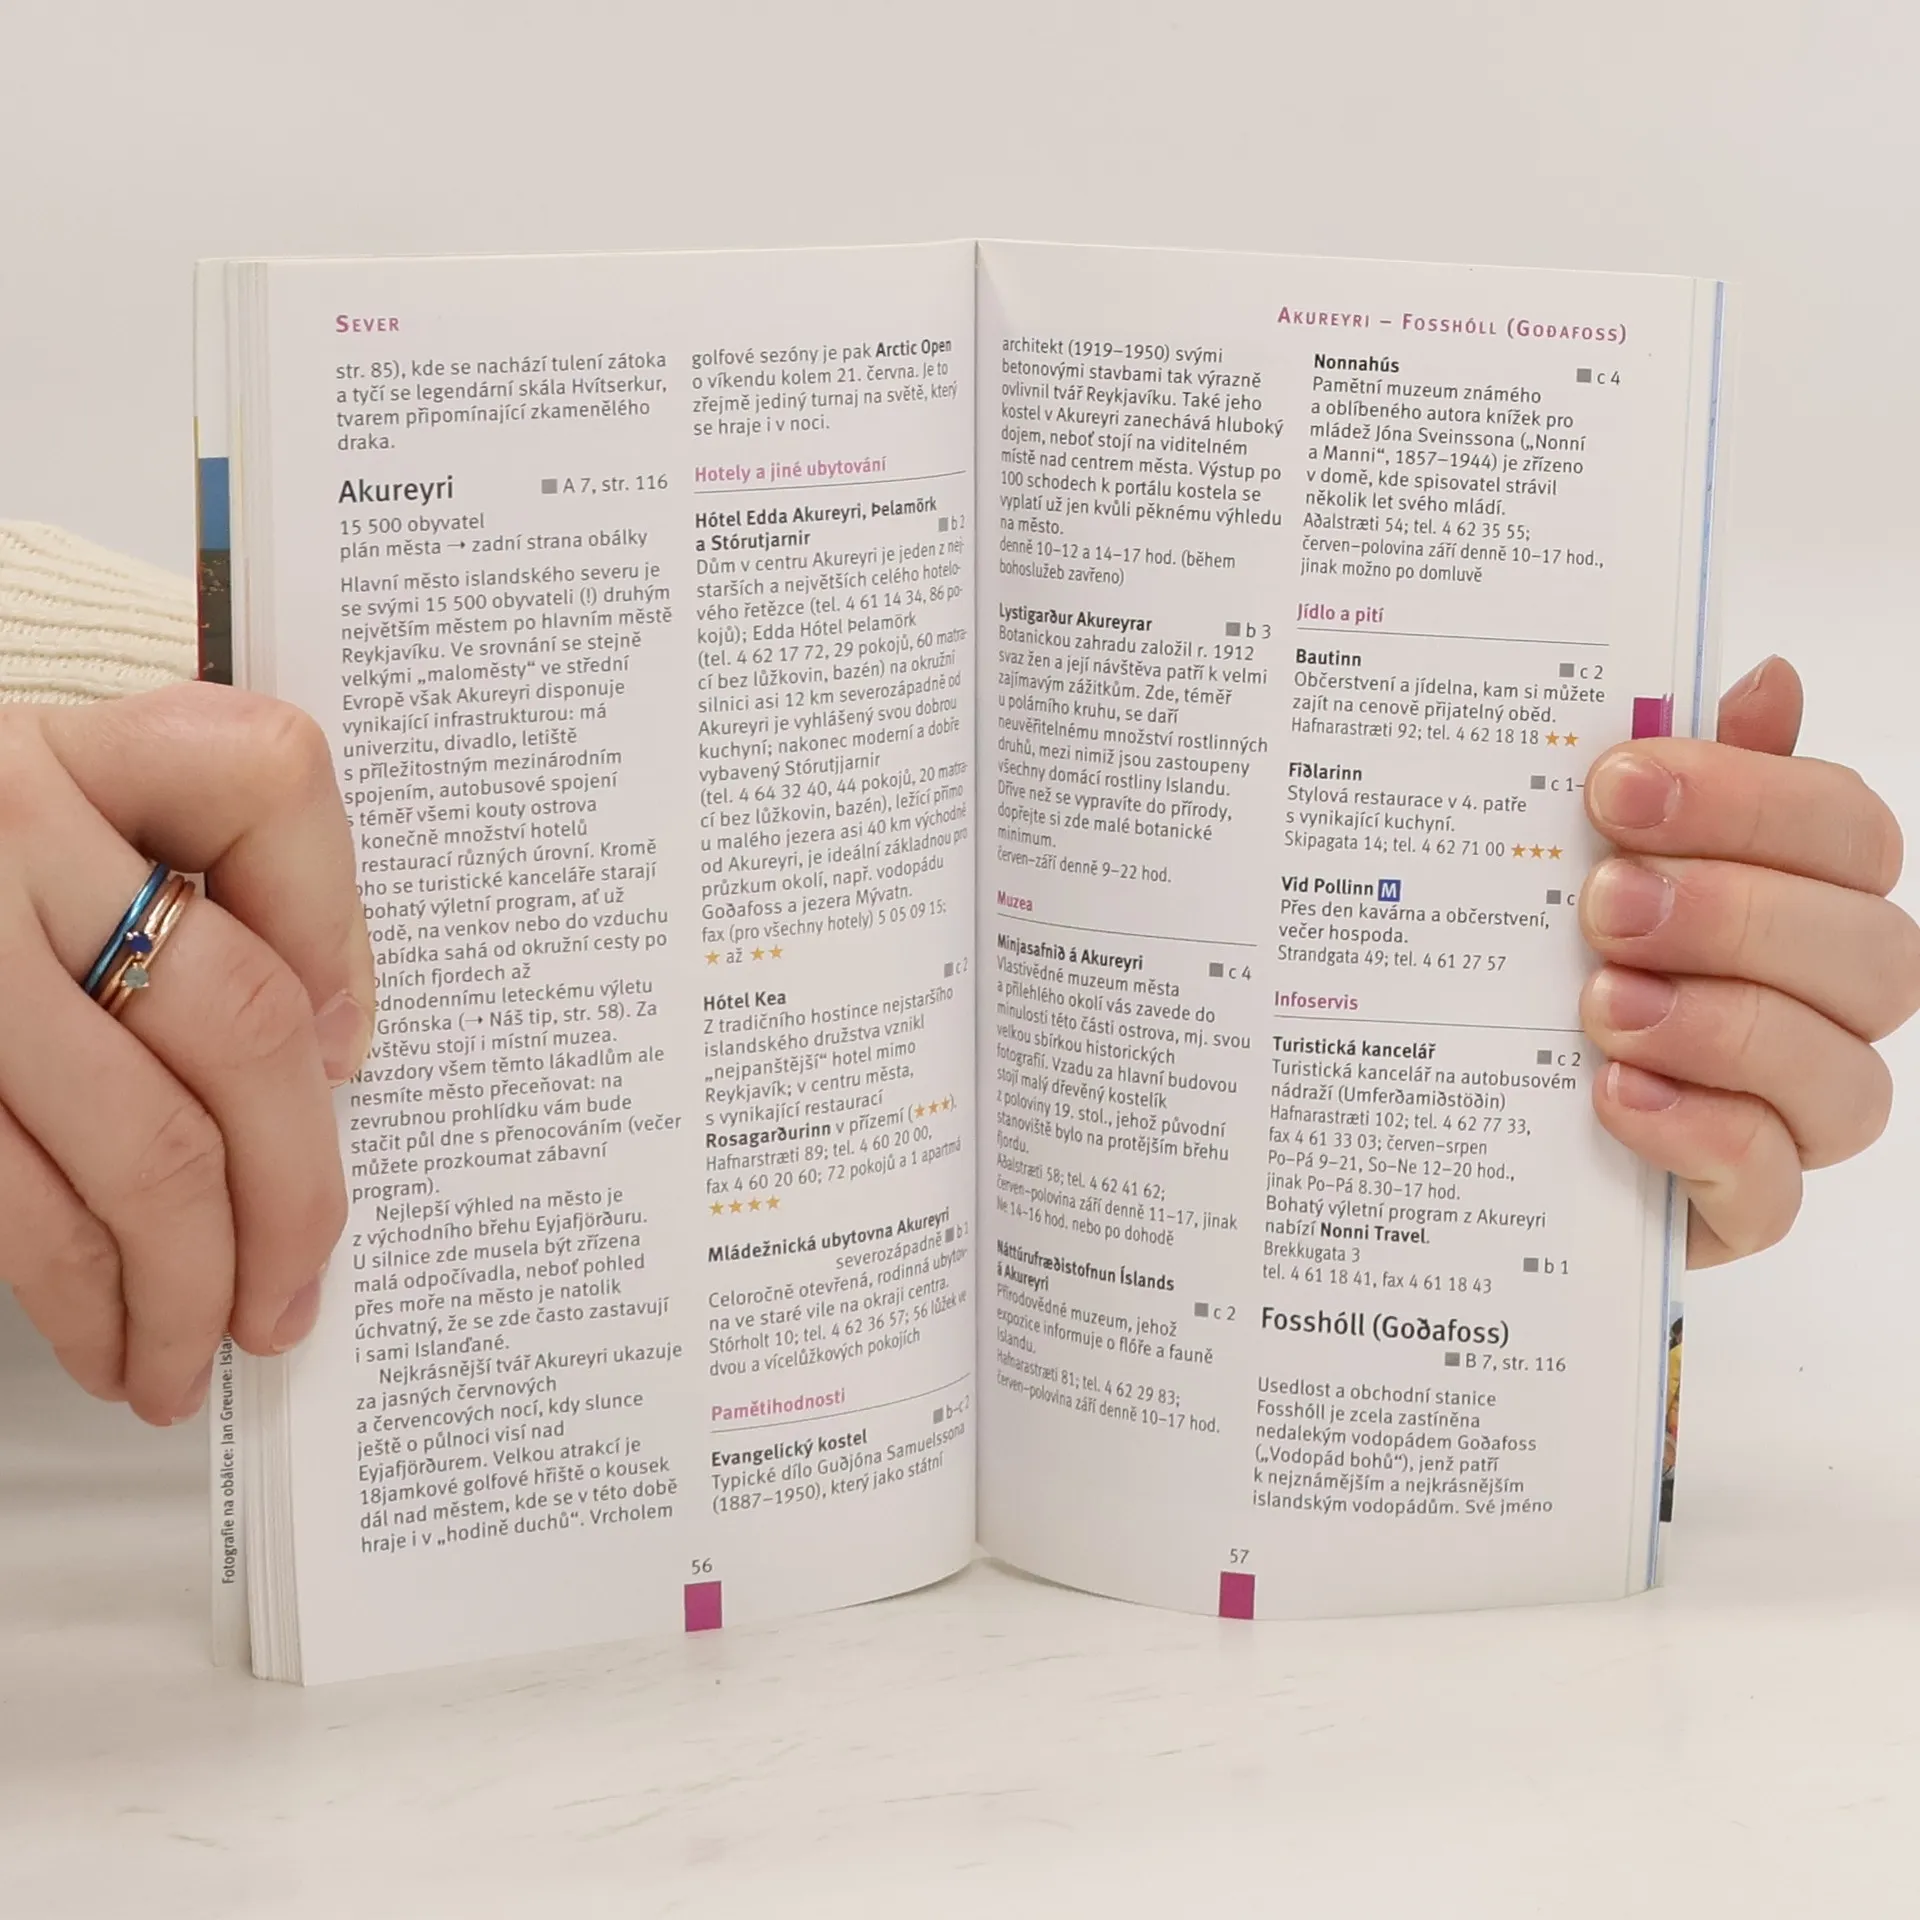 SEVER
str. 85), kde se nachází tulení zátoka
a tyčí se legendární skála Hvítserkur,
tvarem připomínající zkamenělého
draka.
Akureyri
A 7, str. 116
15 500 obyvatel
plán města → zadní strana obálky
Hlavní město islandského severu je
se svými 15 500 obyvateli (!) druhým
největším městem po hlavním městě
Reykjavíku. Ve srovnání se stejně
velkými „maloměsty“ ve střední
Evropě však Akureyri disponuje
vynikající infrastrukturou: má
univerzitu, divadlo, letiště
s příležitostným mezinárodním
spojením, autobusové spojení
s téměř všemi kouty ostrova
konečně množství hotelů
restaurací různých úrovní. Kromě
oho se turistické kanceláře starají
bohatý výletní program, ať už
odě, na venkov nebo do vzduchu
abídka sahá od okružní cesty po
olních fjordech až
ednodennímu leteckému výletu
Grónska (→ Náš tip, str. 58). Za
vštěvu stojí i místní muzea.
Navzdory všem těmto lákadlům ale
nesmíte město přeceňovat: na
zevrubnou prohlídku vám bude
stačit půl dne s přenocováním (večer
můžete prozkoumat zábavní
program).
Nejlepší výhled na město je
z východního břehu Eyjafjörðuru.
U silnice zde musela být zřízena
malá odpočívadla, neboť pohled
přes moře na město je natolik
úchvatný, že se zde často zastavují
i sami Islanďané.
Nejkrásnější tvář Akureyri ukazuje
za jasných červnových
a červencových nocí, kdy slunce
ještě o půlnoci visí nad
Eyjafjörðurem. Velkou atrakcí je
18jamkové golfové hřiště o kousek
dál nad městem, kde se v této době
hraje i v „hodině duchů“. Vrcholem
golfové sezóny je pak Arctic Open
o víkendu kolem 21. června. Je to
zřejmě jediný turnaj na světě, který
se hraje i v noci.
Hotely a jiné ubytování
Hótel Edda Akureyri, Þelamörk
a Stórutjarnir
b 2
Dům v centru Akureyri je jeden z nej-
starších a největších celého hotelo-
vého řetězce (tel. 4 61 14 34, 86 po-
kojů); Edda Hótel Þelamörk
(tel. 4 62 17 72, 29 pokojů, 60 matra-
cí bez lůžkovin, bazén) na okružní
silnici asi 12 km severozápadně od
Akureyri je vyhlášený svou dobrou
kuchyní; nakonec moderní a dobře
vybavený Stórutjjarnir
(tel. 4 64 32 40, 44 pokojů, 20 matra-
cí bez lůžkovin, bazén), ležící přímo
u malého jezera asi 40 km východně
od Akureyri, je ideální základnou pro
průzkum okolí, např. vodopádu
Goðafoss a jezera Mývatn.
fax (pro všechny hotely) 5 05 09 15;
★ až ★★
c 2
Hótel Kea
Z tradičního hostince nejstaršího
islandského družstva vznikl
„nejpanštější“ hotel mimo
Reykjavík; v centru města,
s vynikající restaurací
Rosagarðurinn v přízemí (★★★).
Hafnarstræti 89; tel. 4 60 20 00,
fax 4 60 20 60; 72 pokojů a 1 apartmá
★★★★
Mládežnická ubytovna Akureyri
severozápadně b 1
Celoročně otevřená, rodinná ubytov-
na ve staré vile na okraji centra.
Stórholt 10; tel. 4 62 36 57; 56 lůžek ve
dvou a vícelůžkových pokojích
Pamětihodnosti
b–c 2
Evangelický kostel
Typické dílo Guðjóna Samuelssona
(1887–1950), který jako státní
56
AKUREYRI – FOSSHÓLL (GOÐAFOSS)
architekt (1919–1950) svými
betonovými stavbami tak výrazně
ovlivnil tvář Reykjavíku. Také jeho
kostel v Akureyri zanechává hluboký
dojem, neboť stojí na viditelném
místě nad centrem města. Výstup po
100 schodech k portálu kostela se
vyplatí už jen kvůli pěknému výhledu
na město.
denně 10–12 a 14–17 hod. (během
bohoslužeb zavřeno)
Lystigarður Akureyrar
b 3
Botanickou zahradu založil r. 1912
svaz žen a její návštěva patří k velmi
zajímavým zážitkům. Zde, téměř
u polárního kruhu, se daří
neuvěřitelnému množství rostlinných
druhů, mezi nimiž jsou zastoupeny
všechny domácí rostliny Islandu.
Dříve než se vypravíte do přírody,
dopřejte si zde malé botanické
minimum.
červen–září denně 9–22 hod.
Muzea
Minjasafnið á Akureyri
c 4
Vlastivědné muzeum města
a přilehlého okolí vás zavede do
minulosti této části ostrova, mj. svou
velkou sbírkou historických
fotografií. Vzadu za hlavní budovou
stojí malý dřevěný kostelík
z poloviny 19. stol., jehož původní
stanoviště bylo na protějším břehu
fjordu.
Aðalstræti 58; tel. 4 62 41 62;
červen–polovina září denně 11–17, jinak
Ne 14–16 hod. nebo po dohodě
Náttúrufræðistofnun Íslands
á Akureyri
c 2
Přírodovědné muzeum, jehož
expozice informuje o flóře a fauně
Islandu.
Hafnarastræti 81; tel. 4 62 29 83;
červen–polovina září denně 10–17 hod.
Nonnahús
c 4
Pamětní muzeum známého
a oblíbeného autora knížek pro
mládež Jóna Sveinssona („Nonní
a Manni“, 1857–1944) je zřízeno
v domě, kde spisovatel strávil
několik let svého mládí.
Aðalstræti 54; tel. 4 62 35 55;
červen–polovina září denně 10–17 hod.,
jinak možno po domluvě
Jídlo a pití
Bautinn
c 2
Občerstvení a jídelna, kam si můžete
zajít na cenově přijatelný oběd.
Hafnarastræti 92; tel. 4 62 18 18 ★★
Fiðlarinn
c 1–
Stylová restaurace v 4. patře
s vynikající kuchyní.
Skipagata 14; tel. 4 62 71 00 ★★★
Vid Pollinn M
c
Přes den kavárna a občerstvení,
večer hospoda.
Strandgata 49; tel. 4 61 27 57
Infoservis
Turistická kancelář
c 2
Turistická kancelář na autobusovém
nádraží (Umferðamiðstöðin)
Hafnarastræti 102; tel. 4 62 77 33,
fax 4 61 33 03; červen–srpen
Po–Pá 9–21, So–Ne 12–20 hod.,
jinak Po–Pá 8.30–17 hod.
Bohatý výletní program z Akureyri
nabízí Nonni Travel.
Brekkugata 3
b 1
tel. 4 61 18 41, fax 4 61 18 43
Fosshóll (Goðafoss)
B 7, str. 116
Usedlost a obchodní stanice
Fosshóll je zcela zastíněna
nedalekým vodopádem Goðafoss
(„Vodopád bohů“), jenž patří
k nejznámějším a nejkrásnějším
islandským vodopádům. Své jméno
57
Fotografie na obálce: Jan Greune: Islan